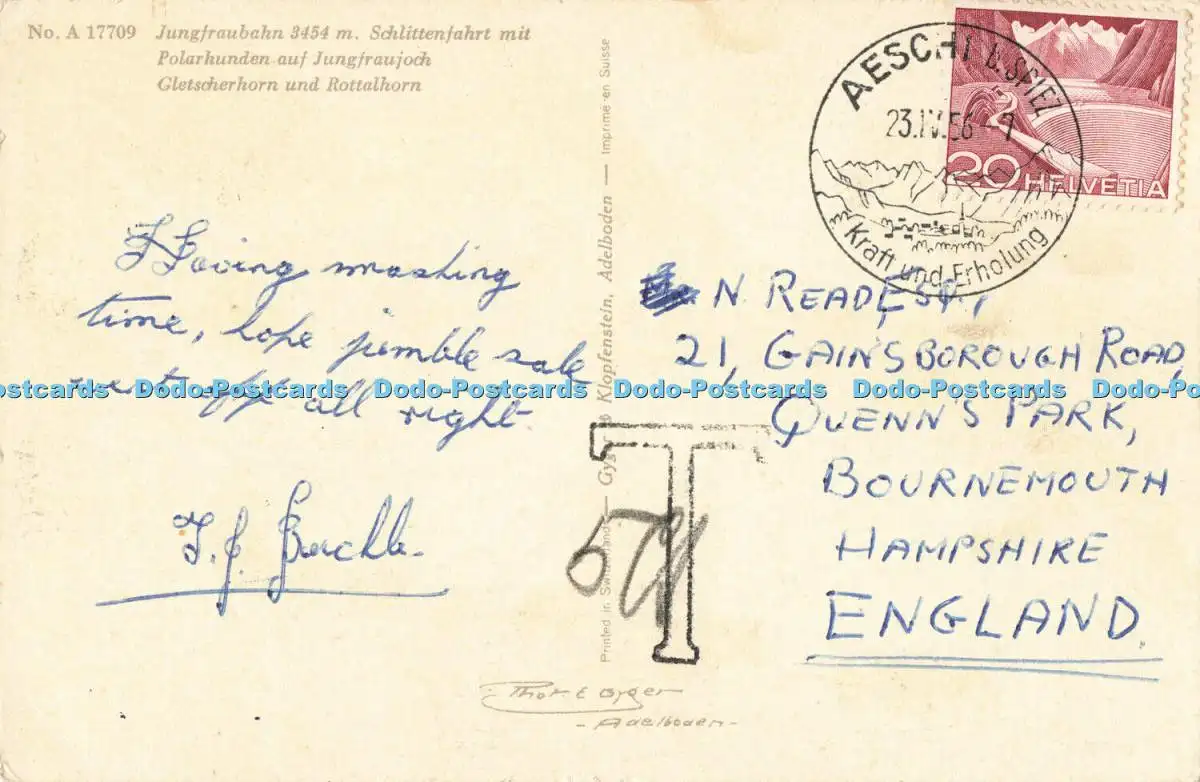 No. A 17709 Jungfraubahn 3454 m. Schlittenfahrt mit
Polarhunden auf Jungfraujoch
Gletscherhorn und Rottalhorn
Having smashing
time, hope jumble sale
all right
AESCHI b. SPIEZ
23.IV.56
Kraft und Erholung
20 HELVETIA
N. READE
21, GAINSBOROUGH ROAD,
QUENN'S PARK,
BOURNEMOUTH
HAMPSHIRE
ENGLAND.
T
Printed in Switzerland — Klopfenstein, Adelboden — Imprimé en Suisse
Phot. E. Gyger
- Adelboden -
Dodo-Postcards Dodo-Postcards Dodo-Postcards Dodo-Postcards Dodo-Postcards